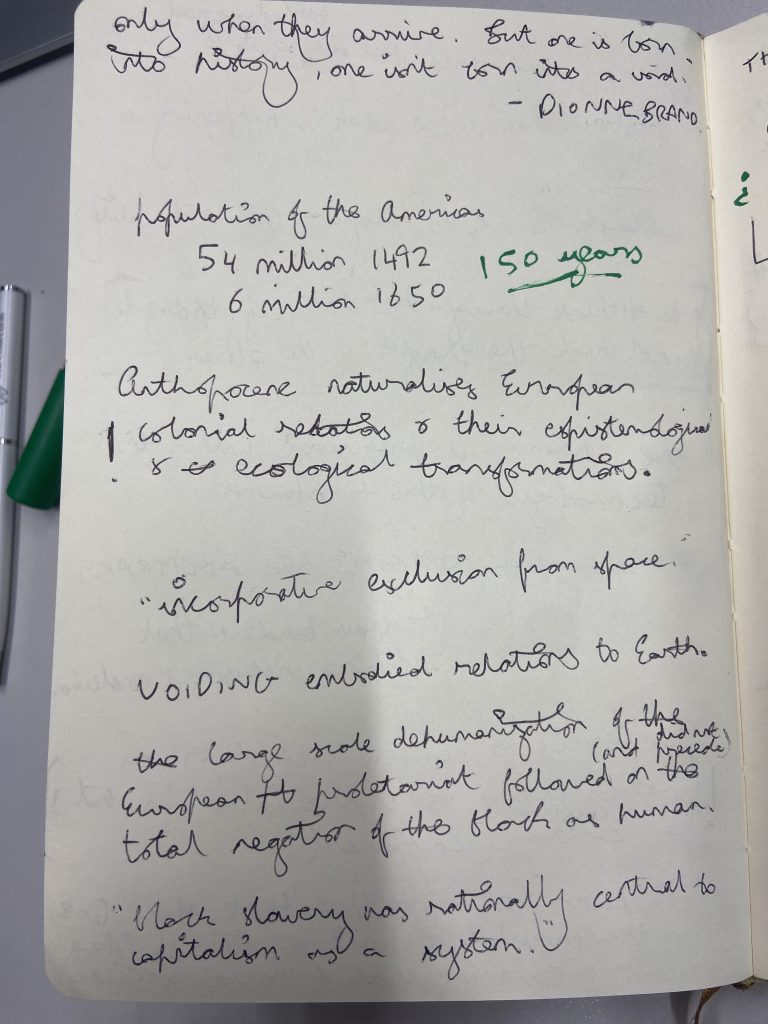 only when they arrive. But one is born
into history, one isn't born into a void.
- DIONNE BRAND.
population of the Americas
54 million 1492
6 million 1650
150 years
Anthopocene naturalises European
! colonial relations & their epistemological
& ecological transformations.
"incorporative exclusion from space."
VOIDING embodied relations to Earth.
the large scale dehumanization of the
(and did not precede)
European proletariat followed on the
total negation of the black as human.
"black slavery was rationally central to
capitalism as a system."
TH